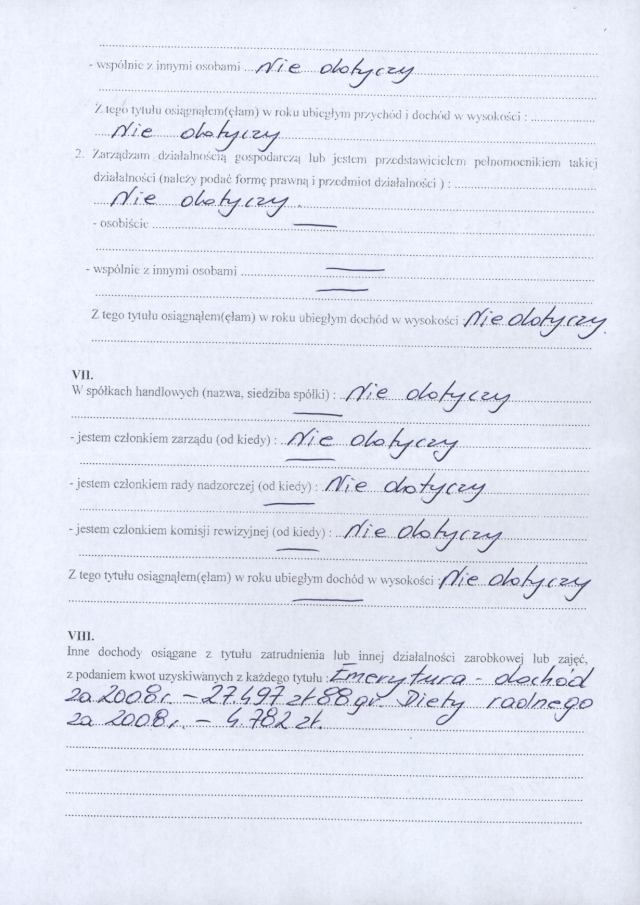 - wspólnie z innymi osobami ... Nie dotyczy
Z tego tytułu osiągnąłem(ęłam) w roku ubiegłym przychód i dochód w wysokości : ...
Nie dotyczy
2. Zarządzam działalnością gospodarczą lub jestem przedstawicielem pełnomocnikiem takiej
działalności (należy podać formę prawną i przedmiot działalności ) : ...
Nie dotyczy.
- osobiście ... —
- wspólnie z innymi osobami ... —
—
Z tego tytułu osiągnąłem(ęłam) w roku ubiegłym dochód w wysokości : Nie dotyczy.
VII.
W spółkach handlowych (nazwa, siedziba spółki) : Nie dotyczy
—
- jestem członkiem zarządu (od kiedy) : Nie dotyczy
—
- jestem członkiem rady nadzorczej (od kiedy) : Nie dotyczy
—
- jestem członkiem komisji rewizyjnej (od kiedy) : Nie dotyczy
—
Z tego tytułu osiągnąłem(ęłam) w roku ubiegłym dochód w wysokości : Nie dotyczy
—
VIII.
Inne dochody osiągane z tytułu zatrudnienia lub innej działalności zarobkowej lub zajęć,
z podaniem kwot uzyskiwanych z każdego tytułu : Emerytura - dochód
za 2008r. - 27.497 zł 88 gr. Diety radnego
za 2008r. - 4.782 zł.